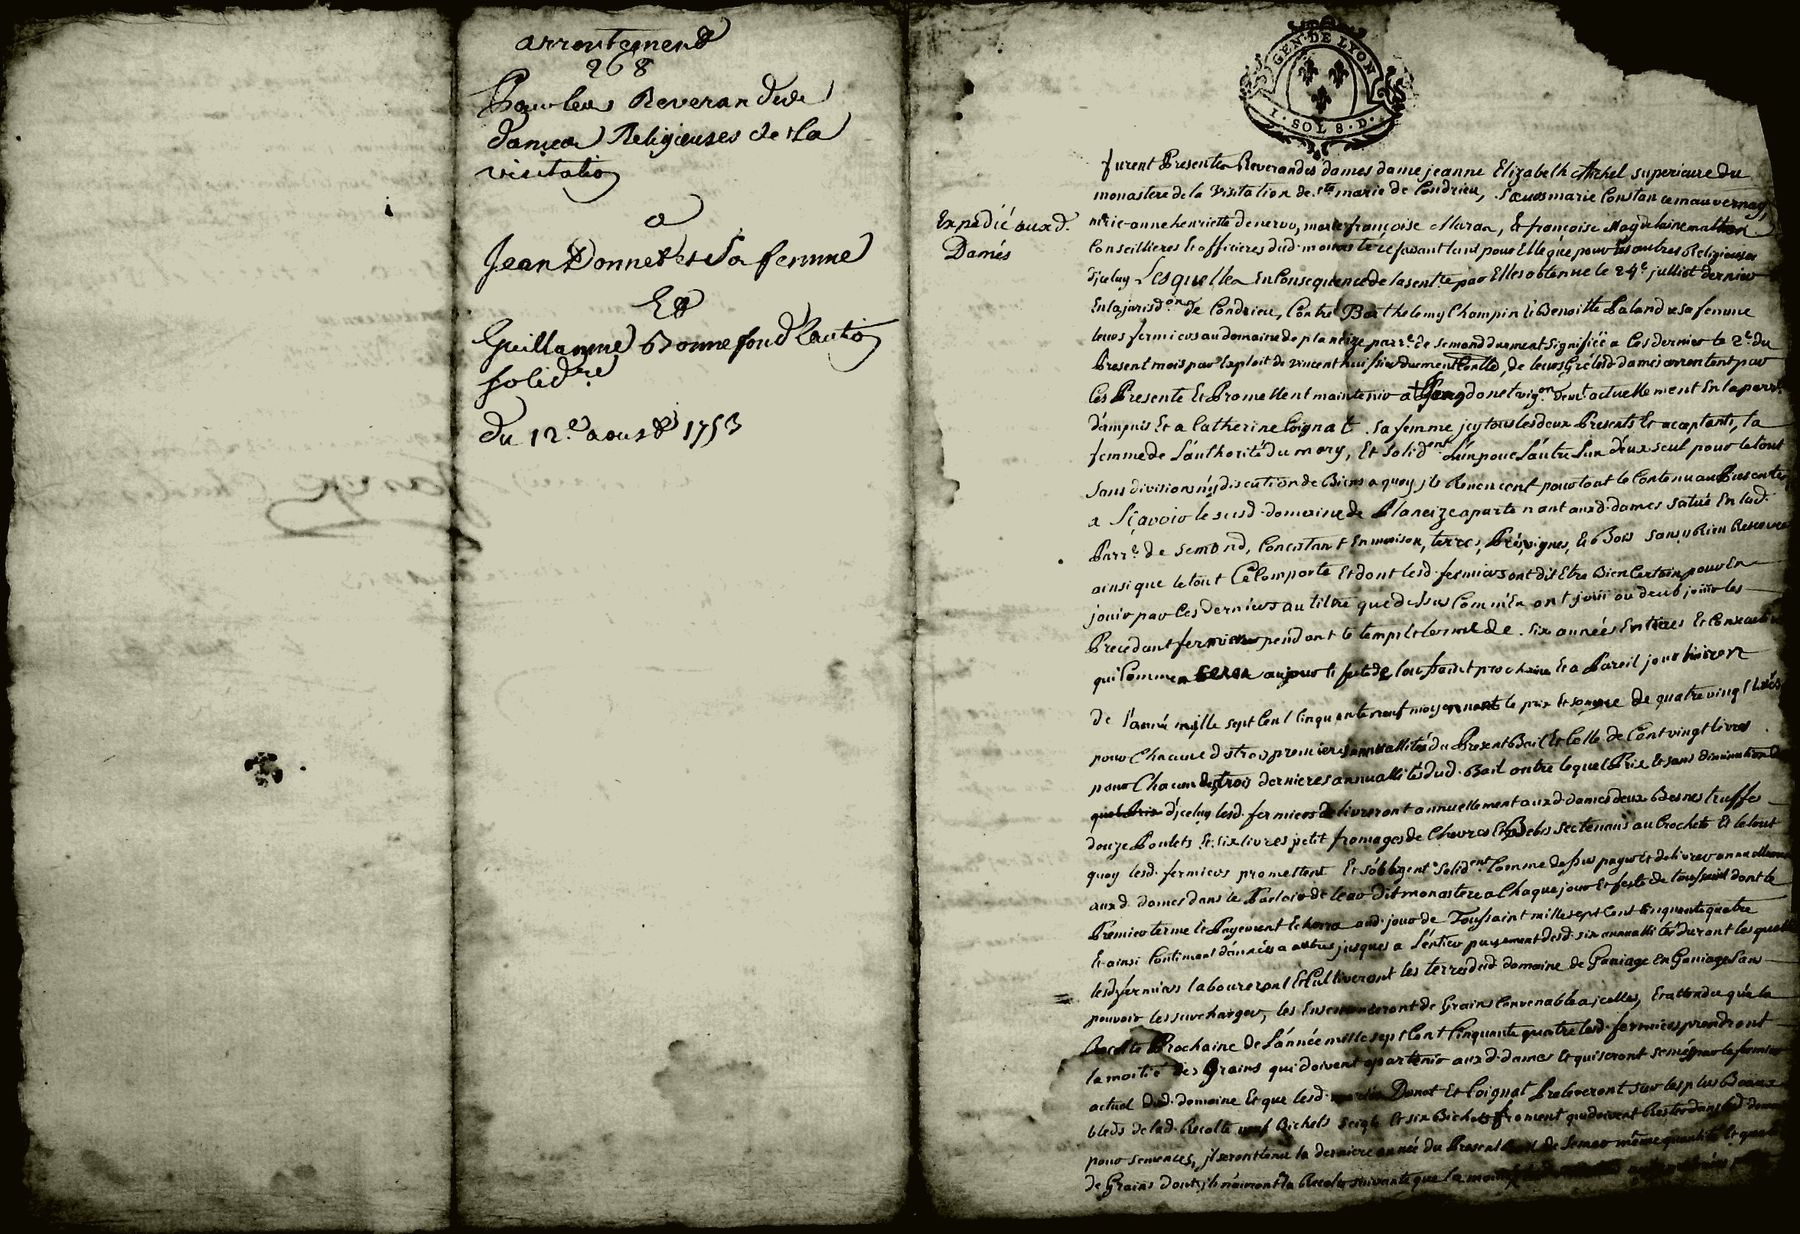 arrentement
268
Pour les Reverandes
dames Religieuses de la
visitation
a
Jean Donnet et sa femme
Et
Guillaume Bonnefond Caution
solid.re
du 12.e aoust 1753
GEN·DE LYON
I·SOL 8·D·
Expedié aux d.
Dames
furent Presentes Reverandes dames dame jeanne Elizabeth superieure du
monastere de la Visitation de S.te marie de Condrieu, Soeurs marie Constance mauvernay
marie anne henriette de nervo, marie françoise Maran, Et françoise Magdelaine
Conseillieres Et officieres dud. monastere faisant tant pour Elle que pour les autres Religieuses
d'jceluy Lesquelles En Consequence de la sent.ce par Elles obtenue le 24.e julliet dernier
En la jurisd.on de Condrieu, Contre Barthelemy Champin Et Benoitte Laland sa femme
leurs fermiers au domaine de planeize parr.e de Semond durement signifiée a Ces dernier le 2.e du
Present mois par Exploit de vincent huissier durement Contllé, de leurs Gré lesd. dames arrentent par
Ces Presente Et Promettent maintenir a Jean donet vig.on dem.t actuellement En la parr.e
d'ampuis Et a Catherine Coignat sa femme jcy tous les deux Presents Et aceptants, la
femme de L'authorité du mary, Et solid.ent L'un pour L'autre L'un d'eux seul pour le tout
sans division ny discution de Biens a quoy jls Renoncent pour tout le Contenu au Presentes
a Sçavoir le susd. domaine de Planeize apartenant auxd. dames situé En lad.
Parr.e de Semond, Concistant En maison, terres, Prés, vignes, Et Bois sans Rien Reserver
ainsi que le tout Ce Comporte Et dont lesd. fermiers ont dit Etre Bien Certain pour En
jouir par Ces derniers au titre que dessus Comm'En ont joüi ou deub joüir les
Precedant fermiers pendant le temps Et terme de six années Entieres Et Consecutives
qui Commenceron au jour Et feste de toussaint prochaine Et a Pareil jour finiron
de l'année mille sept Cent Cinquante neuf moyennant le prix Et somme de quatre vingt livres
pour Chacune des trois premieres annuallités du Present Bail Et Celle de Cent vingt livres
pour Chacune des trois dernieres annuallités dud. Bail outre lequel Prix Et sans diminution
d'jceluy lesd. fermiers delivreront annuellement auxd. dames deux Bennes truffes
douze Poulets Et six livres petit fromages de Chevres Et Brebis se tenans au Crochets Et le tout
quoy lesd. fermiers promettent Et s'obligent solid.ent Comme dessus payer Et delivrer annuellement
auxd. dames dans le Parloir de leur dit monastere a Chaque jour Et feste de toussaint dont le
Premier terme Et Payement Echerra aud. jour de Toussaint mille sept Cent Cinquante quatre
Et ainsi Continuer d'années a autres jusques a L'entier payement desd. six annuallités durant lesquelles
lesd. fermiers laboureront Et Cultiveront les terres dud. domaine de Ganiage En Ganiage sans
pouvoir les surcharger, les Ensemenceront de Grains Convenable a jcelles, Et attendu que la
Recolte Prochaine de L'année mille sept Cent Cinquante quatre lesd. fermiers prendront
la moitié des Grains qui doivent apartenir auxd. dames Et qui seront semés par le fermier
actuel dud. domaine Et que lesd. Donet Et Coignat Preleveront sur les plus Beaux
bleds de lad. Recolte neuf Bichets seigle Et six Bichets froment qui doivent Rester dans led. domaine
pour semences, jl seront tenu la derniere année du Present Bail de semer même quantité Et qualité
de Grains dont jls n'auront la Recolte suivante que la moitié